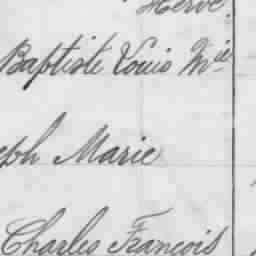 Hervé
Baptiste Louis Mie
eph Marie
Charles François